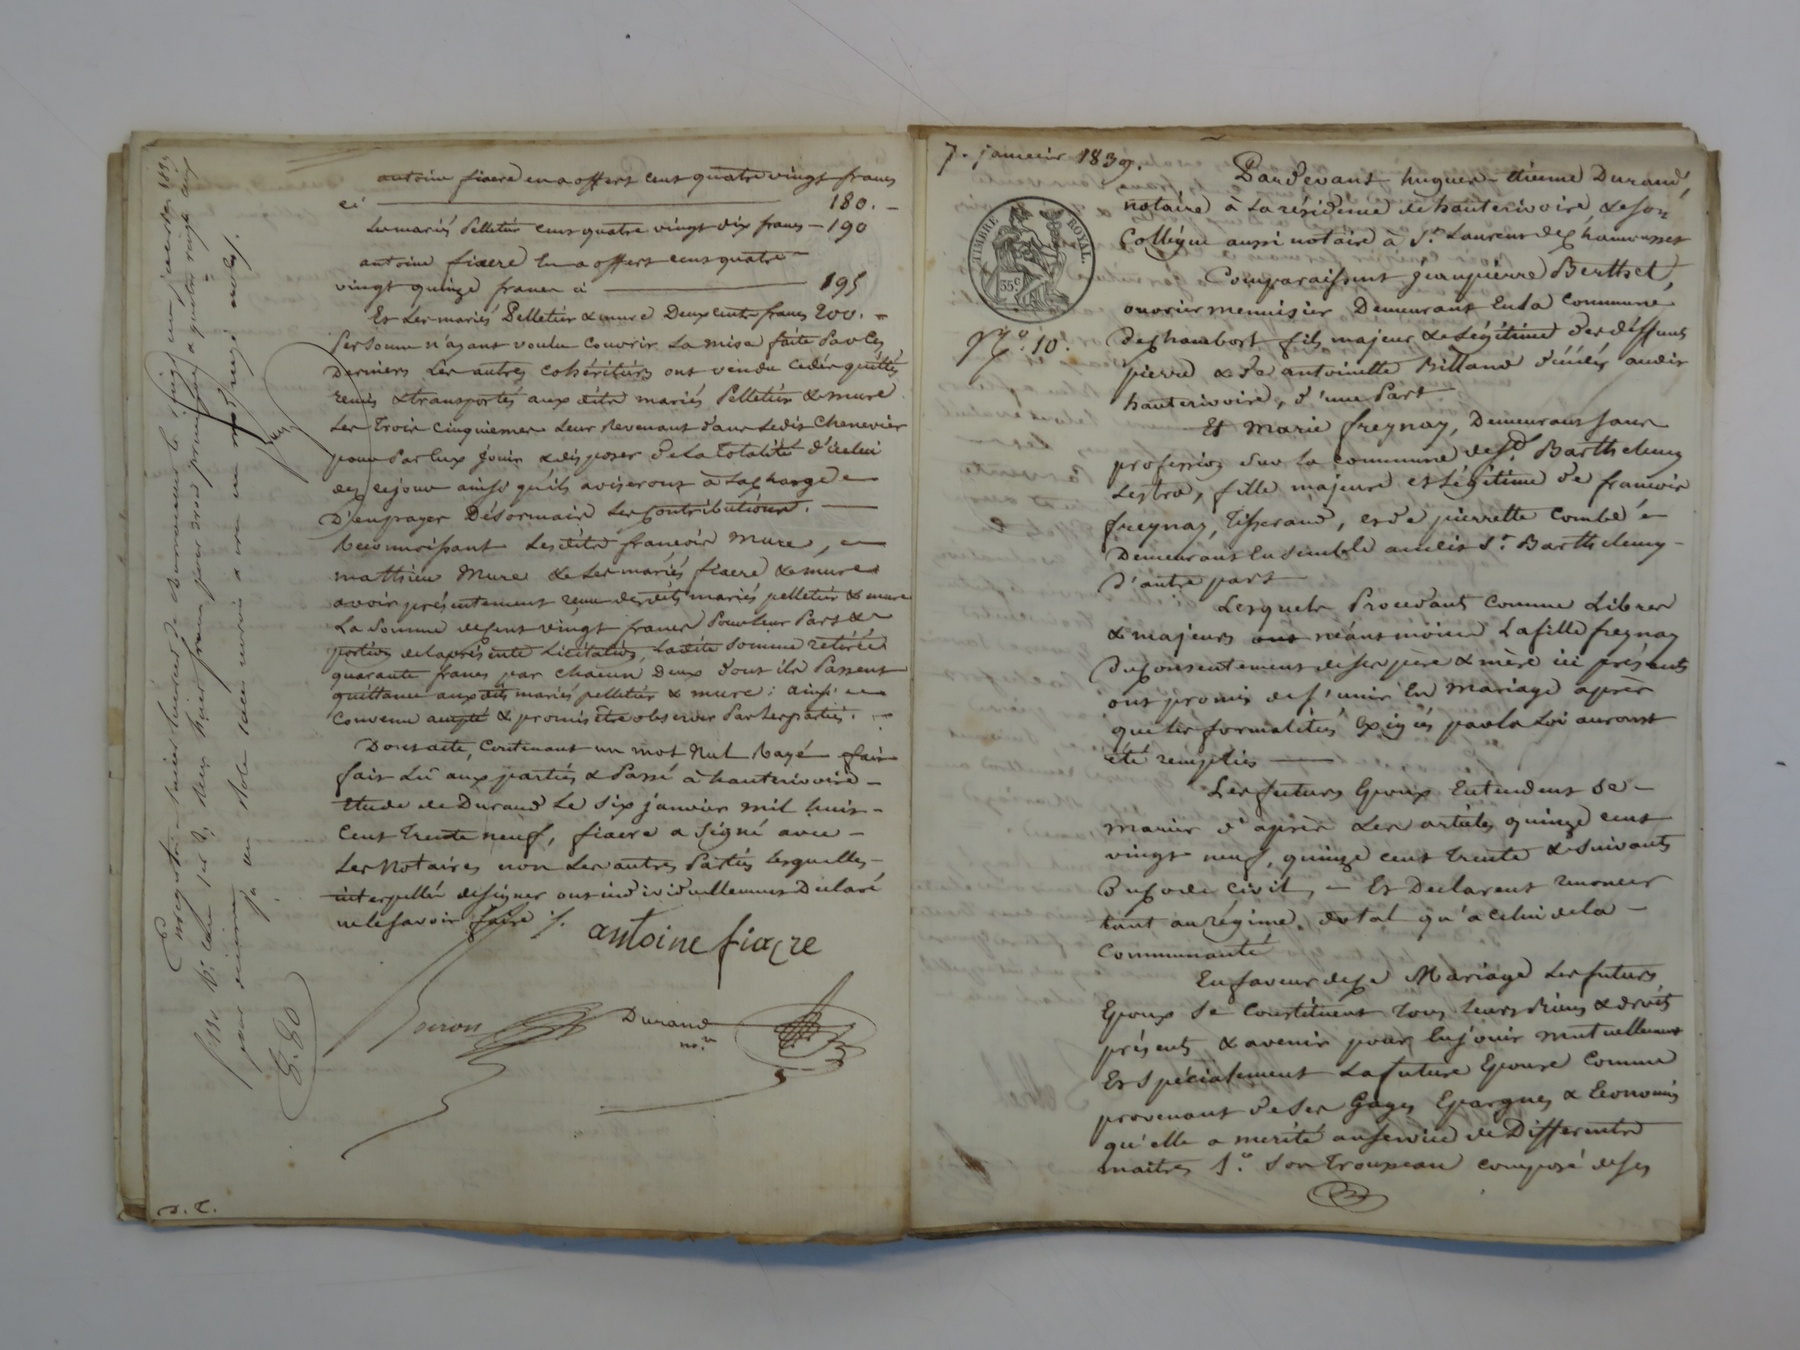 antoine fiacre en a offert cent quatre vingt francs
ci 180. –
Les mariés Pelletier cent quatre vingt dix francs – 190
antoine fiacre en a offert cent quatre
vingt quinze francs ci 195
Et Les mariés Pelletier & mure Deux cents francs 200. –
Personne n'ayant voulu Couvrir La mise faite Par Ces
Derniers Les autres cohéritiers ont vendu cédé quittés
remis & transportés aux dits mariés Pelletier & mure
Les Trois Cinquiemes Leur Revenant dans Ledit Chenevier
pour Par Eux Jouir & disposer de La Totalité d'icelui
dez ce jour ainsi qu'ils aviseront à La charge
D'en payer Désormais Les Contributions. –
Reconnoissant Lesdits francois Mure,
mathieu Mure & Les mariés fiacre & mure
avoir présentement reçu desdits mariés pelletier & mure
La Somme de Cent vingt francs Pour Leur Part &
portion de la présente Licitation, Ladite Somme retirée
quarante francs par chacun Deux dont ils Passent
quittance aux dits mariés pelletier & mure : ainsi
Convenu accepté & promis être observer Par Les parties. –
Dont acte, Contenant un mot Nul Rayé fait
fait Lû aux parties & Passé à hauterivoire –
Etude de Durand Le Six janvier mil huit –
Cent Trente neuf, fiacre a Signé avec –
Les Notaires non Les autres Parties Lesquelles –
interpellées de signer ont individuellement Déclaré
ne le savoir faire /.
antoine fiacre
Durand
nore
8.80
D. C.
7. janvier 1839.
TIMBRE ROYAL.
35c
No. 10.
Pardevant hugues-étienne Durand,
notaire à La résidence de hauterivoire, & Son
Collègue aussi notaire à St. Laurent de Chamousset
Comparaissent Jean pierre Berthet,
ouvrier menuisier Demeurant En La Commune
de Chambost fils majeur & Légitime des deffunts
pierre & de antoinette Billand décédés audit
hauterivoire, d'une Part –
Et Marie freynay, Demeurant Sans
profession Sur la commune de St. Barthelemy
Lestra, fille majeure et Légitime de francois
freynay, Tisserand, et de pierrette Combe
Demeurant Ensemble audit St. Barthelemy –
D'autre part –
Lesquels Procédant Comme Libres
& majeurs ont néantmoins La fille freynay
du Consentement de ses père & mère ici présents
ont promis de s'unir En Mariage après
que les formalités Exigées par la Loi auront
été remplies –
Les futurs Epoux Entendent Se –
marier d'après Les articles quinze cent
vingt neuf, quinze cent trente & Suivants
Du Code Civil, – Et Déclarent renoncer
tant au régime dotal qu'à celui de la –
Communauté
En faveur de ce Mariage Les futurs
Epoux Se Constituent Tous Leurs Biens & droits
présents & avenir pour En jouir mutuellement
Et Spécialement La future Epouse Comme
provenant de Ses Gages Epargnes & Economies
qu'elle a mérité au Service de Differents
maitres 1o. Son Trousseau composé de Ses